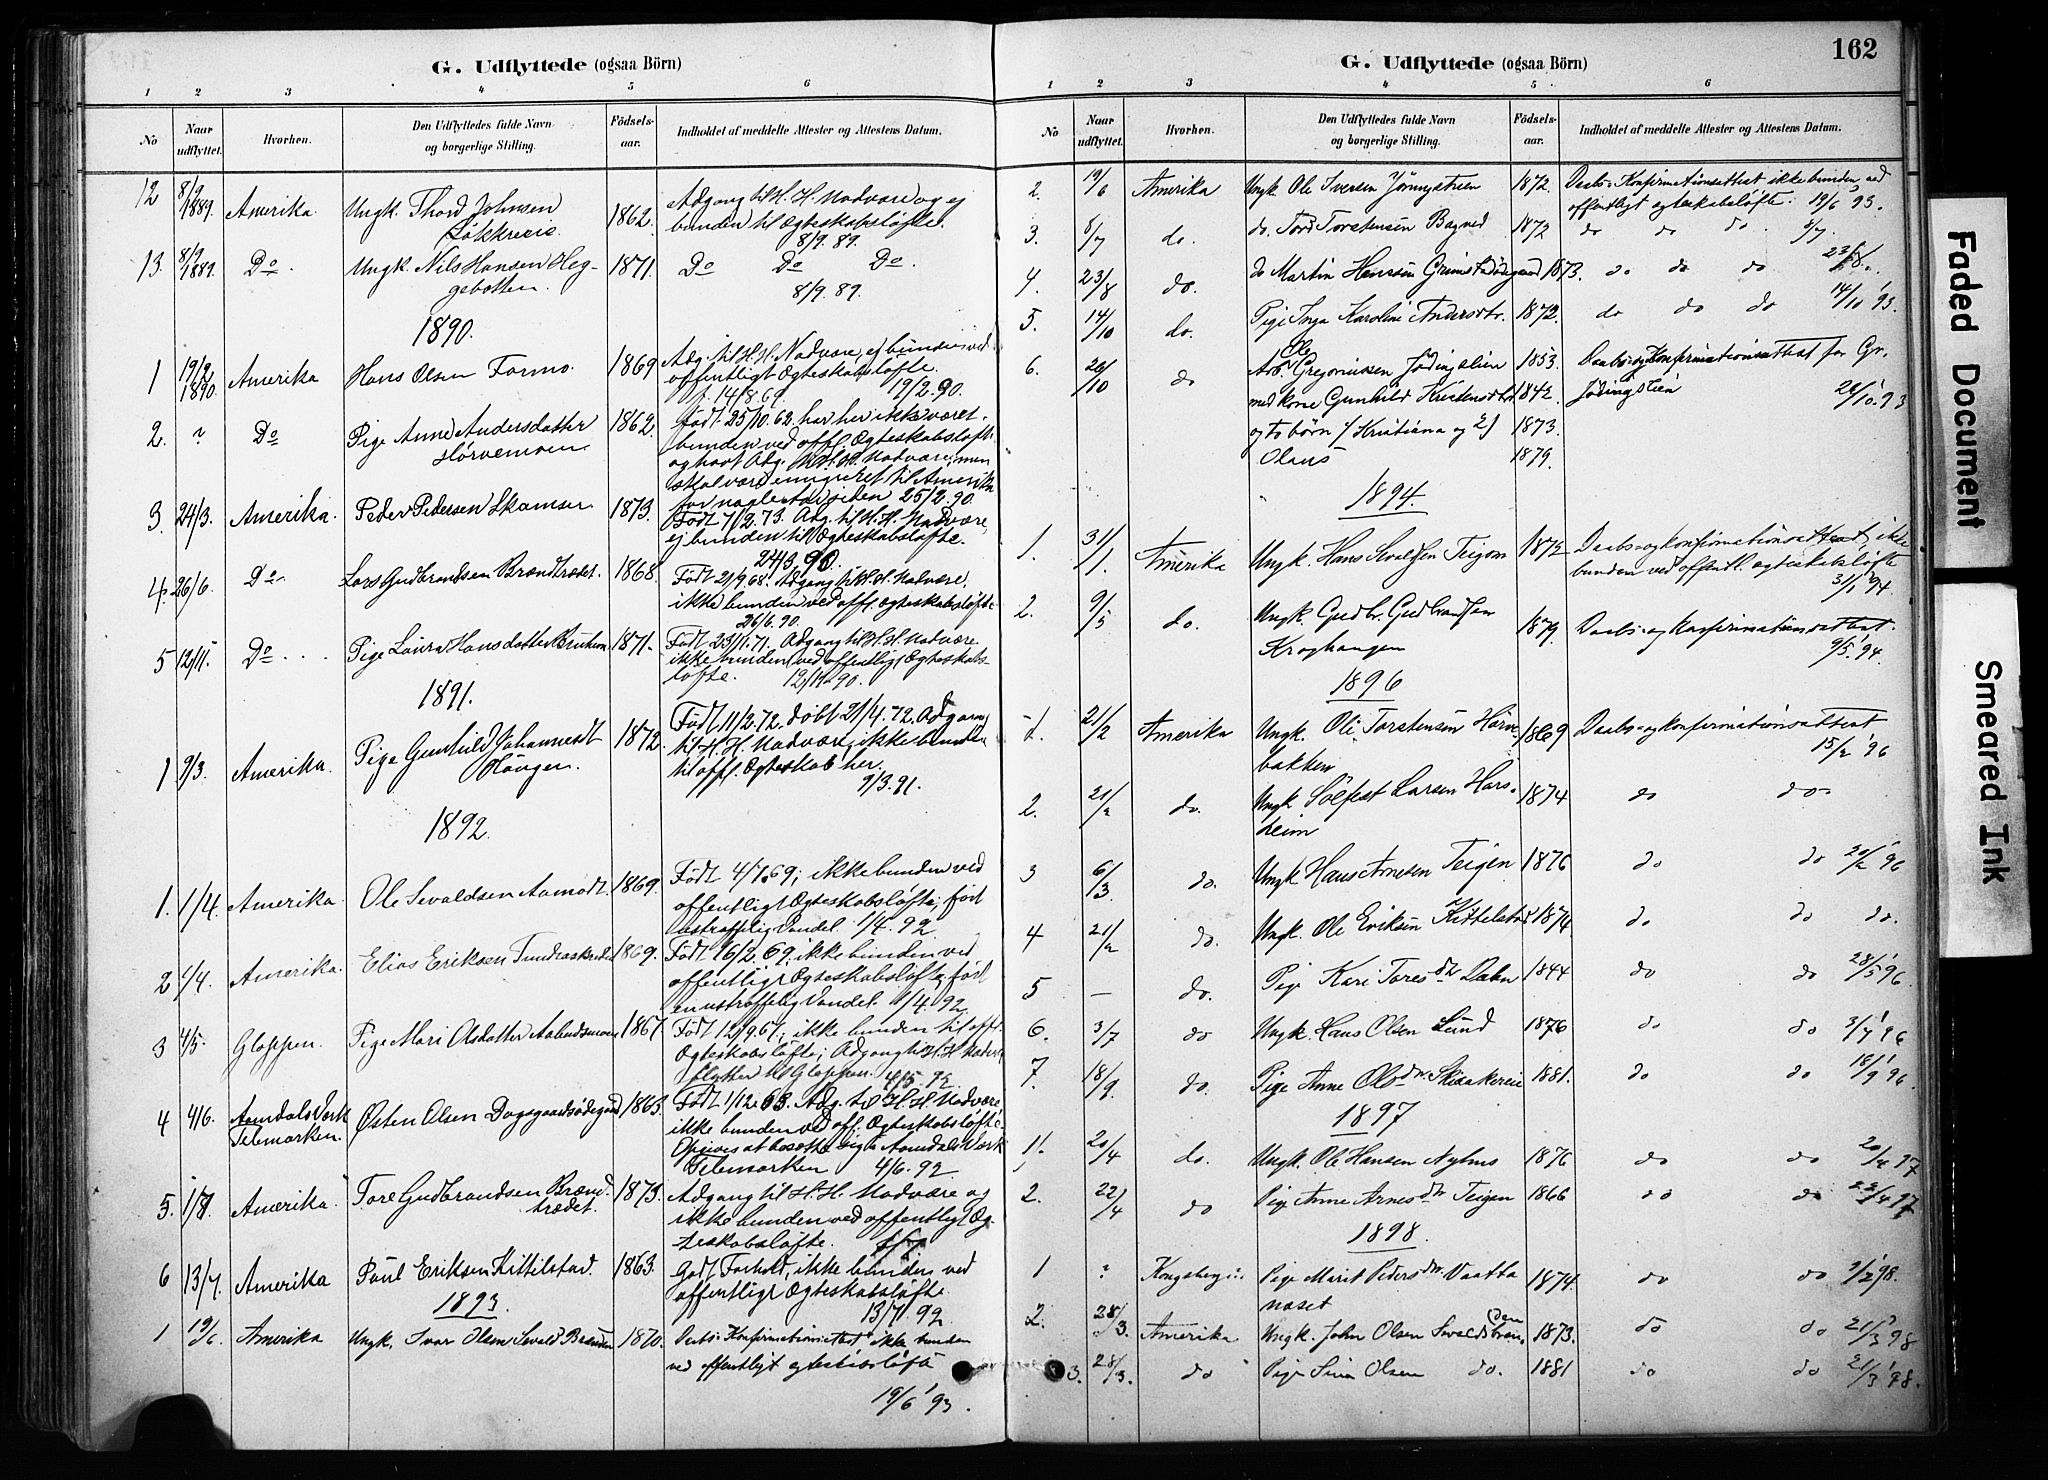 G. Udflyttede (ogsaa Börn)
1 2 3 4 5 6
No
Naar udflyttet.
Hvorhen.
Den Udflyttedes fulde Navn og borgerlige Stilling.
Födsels-aar.
Indholdet af meddelte Attester og Attestens Datum.
12 8/9 1889. Amerika. Ungk. Thord Johnsen 1862. Adgang til H. H. Nadvære og ej
bunden til Ægteskabsløfte.
8/9. 89.
13. 8/9 1889. Do. Ungk. Nils Hansen Heg- 1871. Do Do Do.
gebotten. 8/9. 89.
1890.
1 19/2 1890. Amerika Hans Olsen Formo. 1869 Adg. til H. H. Nadvære, ej bunden ved
offentligt Ægteskabsløfte.
f. 14/8.69. 19/2.90.
2. ? Do Pige Anne Andersdatter 1862. Født 25/10.62, har her ikke været
bunden ved offl. Ægteskabsløfte
og havt Adg. til H. H. Nadvære, men
skal være emigreret til Amerika
for nogle Aar siden 25/2.90.
3. 24/3. Amerika. Peder Pedersen Skamser 1873. Født 7/2.73. Adg. til H. H. Nadvære,
ej bunden til Ægteskabsløfte.
24/3.90.
4. 26/6. Do Lars Gudbrandsen Brændtrædet. 1868. Født 21/9.68. Adgang til H. H. Nadvære.
ikke bunden ved offl. Ægteskabsløfte
26/6.90.
5 12/11. Do Pige Laura Hansdatter 1871. Født 23/1.71. Adgang til H. H. Nadvære.
ikke bunden ved offentligt Ægteskabs-
løfte. 12/11.90.
1891.
1 9/3. Amerika. Pige Gunhild Johannesdt 1872. Født 11/2.72. døbt 21/4.72. Adgang
Haugen. til H. H. Nadvære, ikke bunden
til offl. Ægteskab her.
9/3.91.
1892.
1. 1/4. Amerika. Ole Sevaldsen Aamodt. 1869. Født 4/7.69; ikke bunden ved
offentligt Ægteskabsløfte; ført
ustraffelig Vandel. 1/4.92
2 1/4. Amerika. Elias Eriksen 1869. Født 16/2.69, ikke bunden ved
offentligt Ægteskabsløfte, ført
en ustraffelig Vandel. 1/4.92.
3 4/5. Gloppen. Pige Mari Olsdatter 1867. Født 12/9.67; ikke bunden til offl.
Ægteskabsløfte; Adgang til H. H. Nadvere,
flytter til Gloppen. 4/5.92.
4 4/6. Aamdals Værk Østen Olsen Dagsgaardsødegaard 1863. Født 1/12.63. Adg. til H. H. Nadvære
Telemarken. ikke bunden ved off. Ægteskabsløfte.
Opgives at bosætte sig i Aamdals Værk
Telemarken 4/6.92
5. 1/7. Amerika. Tore Gudbrandsen Brænd- 1873. Adgang til H. H. Nadvære og
trædet. ikke bunden ved offentligt Æg-
teskabsløfte.
6 13/7. Amerika Paul Eriksen Kittilstad. 1863. Godt Forhold, ikke bunden ved
offentligt Ægteskabsløfte.
13/7.92.
1893.
1 19/6. Amerika Ungk. Ivar Olsen 1870. Daabs- Konfirmationsattest ikke bunden
ved offentligt egteskabsløfte
19/6 '93.
162
G. Udflyttede (ogsaa Börn)
1 2 3 4 5 6
No
Naar udflyttet.
Hvorhen.
Den Udflyttedes fulde Navn og borgerlige Stilling.
Födsels-aar.
Indholdet af meddelte Attester og Attestens Datum.
2. 19/6 Amerika Ungk. Ole Iversen 1872. Daabs- Konfirmationsattest ikke bunden ved
offentligt egteskabsløfte. 19/6 '93.
3. 8/7 do. do. Tord Torstensen 1872 do do do. 8/7.
4. 23/8 do. do Martin Hanssen 1873. do do do 23/8
5. 14/10 do. Pige Inga Karoline Andersdtr. 1872. do do do 14/10 '93.
6. 26/10 do Arb. Ole Gregoriussen 1853. Daabs- og Konfirmationsattest for Gr.
med kone Gunhild Kristensdtr 1842.
og to børn 1) Kristiana og 2) 1873.
Olaus 1879.
1894.
1. 31/1. Amerika Ungk. Hans Sevaldsen Teigen 1872 Daabs- og konfirmationsattest, ikke
bunden ved offentl. egteskabsløfte
31/1 '94.
2. 9/5 do. Ungk. Gudbr. Gudbrandsen 1879. Daabs- og konfirmationsattest.
Kroghaugen 9/5 '94.
1896
1. 21/2 Amerika Ungk. Ole Torstensen 1869 Daabs- og konfirmationsattest
bakken 15/2 '96
2. 21/2 do. Ungk. Sølfest Larsen Hars- 1874 do do
heim
3 6/3. do. Ungk Hans Arnesen Teigen 1876 do do 20/2 '96
4 21/2 do. Ungk. Ole Eriksen Kittelstad 1874 do do do.
5 — do. Pige Kari Toresdtr Dalen 1844 do do 28/5 '96.
6. 3/7 do Ungk. Hans Olsen Lund 1876 do do 3/7 '96
7. 18/9. do. Pige Anne Olsdtr. Skiaakereie 1881. do do 18/9 '96.
1897
1. 20/4 do. Ungk. Ole Hansen 1876 do do 20/4 97
2. 22/4 do Pige Anne Arnesdtr Teigen 1866 do do 22/4 97
1898
1 ? Kongsberg Pige Marit Pedersdtr. Vaatta 1874. do do 2/2 '98.
naset
2. 28/3. Amerika Ungk. John Olsen 1873. do do 21/3 98
3. 28/3. do Pige Sina Olsen do. 1881 do do 21/3 '98.
Faded Document
Smeared Ink